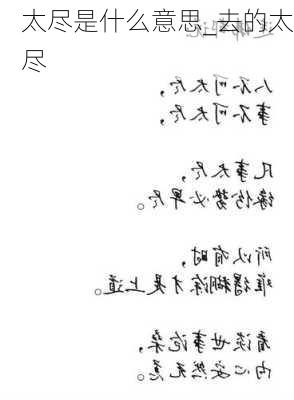 太尽是什么意思_去的太
尽
人不可太尽，
事不可太尽，
凡事太尽，
缘份势必早尽。
所以有时，
难得糊涂才是上道。
看淡世事沧桑，
内心安然无恙。